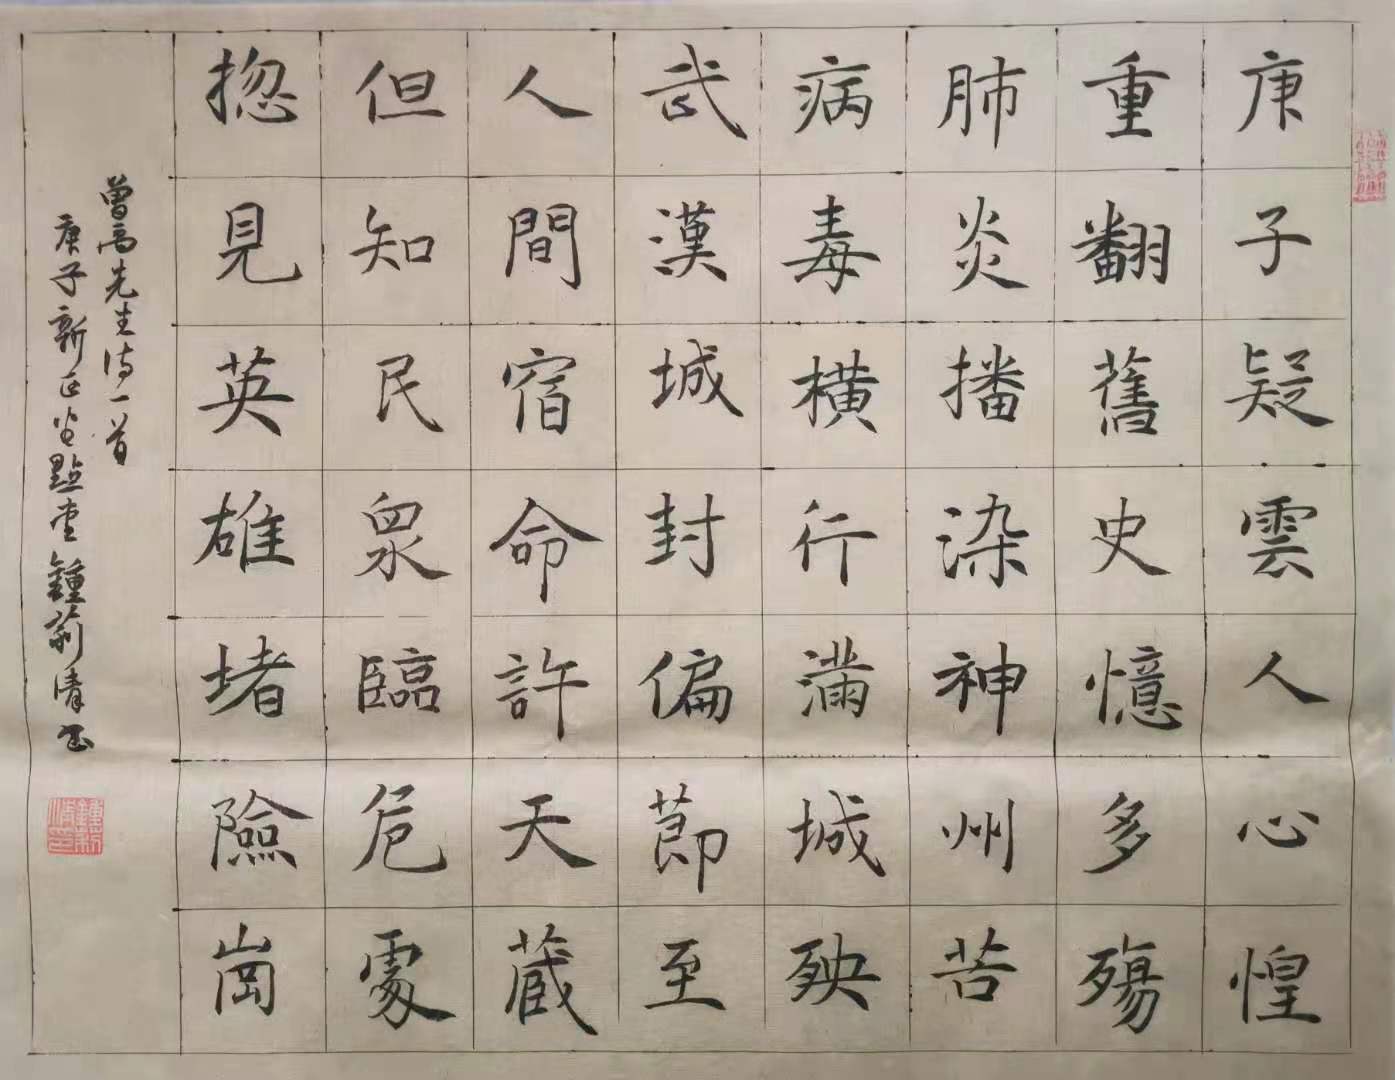 庚子疑雲人心惶
重翻舊史憶多殤
肺炎播染神州苦
病毒橫行滿城殃
武漢城封偏節至
人間宿命許天蔵
但知民眾臨危處
揔見英雄堵險崗
曾高先生诗一首
庚子新正 點堂鍾荊清书